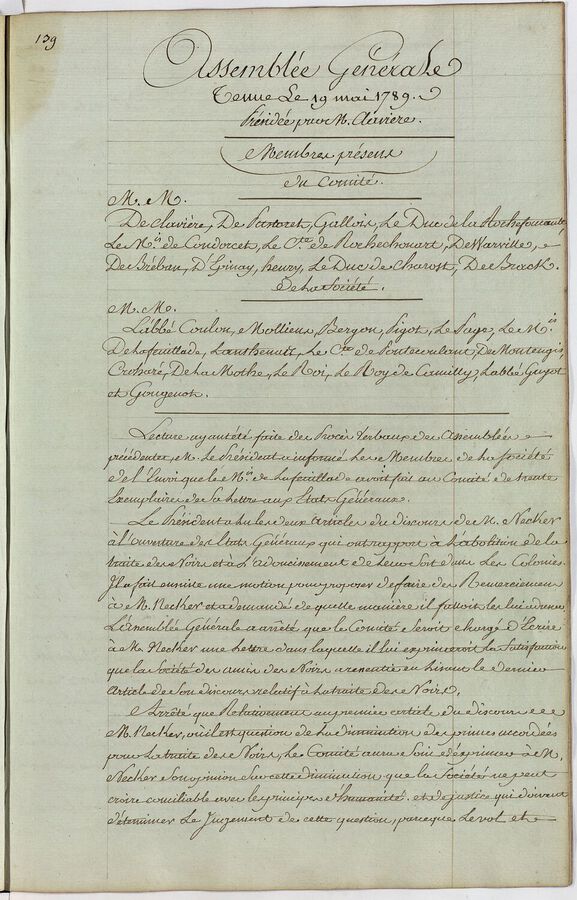 139
Assemblée Générale
Tenue Le 19 mai 1789.
Présidée par M. Claviere.
Membres présens
du Comité.
M. M.
De Claviére, De Pastoret, Gallois, Le Duc de la Rochefoucault
Le M.is de Condorcet, Le C.te de Rochechouart, De Warville,
De Bréban, D'Epinay, henry, Le Duc de Charost, De Brack.
De la Société.
M. M.
L'abbé Coulon, Mollien, Bergon, Pigot, Le Sage, Le M.is
De la feuillade, Lanthenas, Le C.te de Pontecoulant, De Montengis,
Cravaré, De la Mothe, Le Roi, Le Roy de Camilly, L'abbé Guyot
et Gougenot.
Lecture ayant été faite des Procès Verbaux des Assemblées
précédentes, M. Le Président a informé Les Membres de la Société
de l'Envoi que le M.is de la feuillade avoit fait au Comité de trente
Exemplaires de Sa Lettre aux Etats Généraux.
Le Président a lu les deux articles du discours de M. Necker
à l'ouverture des Etats Généraux qui ont rapport à L'abolition de la
traite des Noirs et à L'adoucissement de Leur Sort dans Les Colonies.
Il a fait ensuite une motion pour proposer de faire des Remerciemens
à M. Necker et a demandé de quelle manière il falloit les lui adresser.
L'assemblée Générale a arrêté que le Comité Seroit chargé d'Ecrire
à M. Necker une Lettre dans laquelle il lui exprimeroit la Satisfaction
que la Société des amis des Noirs a ressentie en lisant le dernier
Article de Son discours relatif à la traite des Noirs.
Arrêté que Relativement au premier article du discours de
M. Necker, où il est question de la diminution des primes accordées
pour La traite des Noirs, Le Comité aura Soin d'exprimer à M.
Necker Son opinion Sur cette diminution que la Société ne peut
croire conciliable avec les principes d'humanité et de justice qui doivent
déterminer Le Jugement de cette question, parceque Le vol et